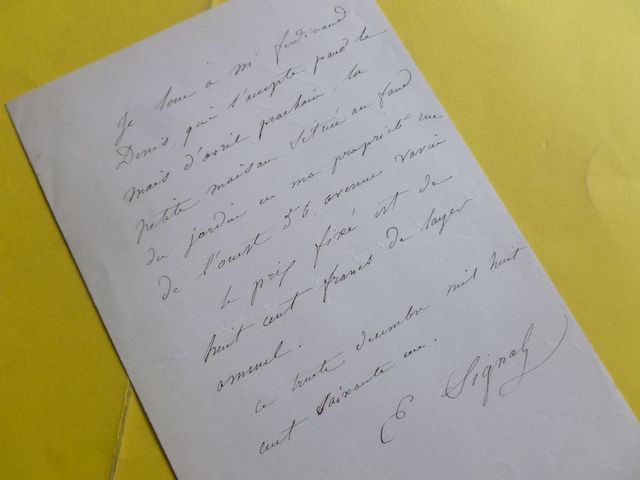 Je loue à Mr Ferdinand
Denis, qui l'accepte pour le
mois d'avril prochain, la
petite maison située au fond
du jardin en ma propriété rue
de l'ouest 56, avenue
Le prix fixé est de
huit cent francs de loyer
annuel.
ce trente decembre mil huit
cent soixante un.
E Signol